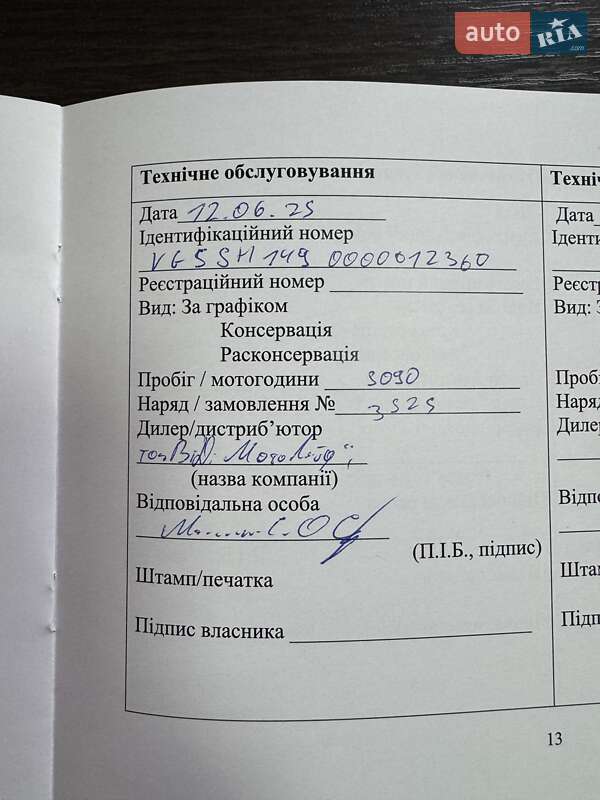 auto RIA .com
Технічне обслуговування
Дата 12.06.25
Ідентифікаційний номер
VG5SH149 0000012360
Реєстраційний номер
Вид: За графіком
Консервація
Расконсервація
Пробіг / мотогодини 3090
Наряд / замовлення № 3525
Дилер/дистриб’ютор
(назва компанії)
Відповідальна особа
(П.І.Б., підпис)
Штамп/печатка
Підпис власника
Техні
Дата
Іденти
Реєстр
Вид: З
Пробі
Наряд
Дилер
Відпо
Штам
Підп
13